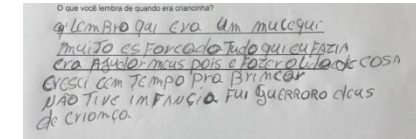 O que você lembra de quando era criancinha?
eu lemBRO qui eva um mulequi
muiTo esForcado Tudo qui eu FAZIA
era AJudar meus pois e Fazer olida de COSA
cresci cem TemPo pra Brimcar
NÃO TIVE imFANCiA FUi GUERRORO deus
de criomça